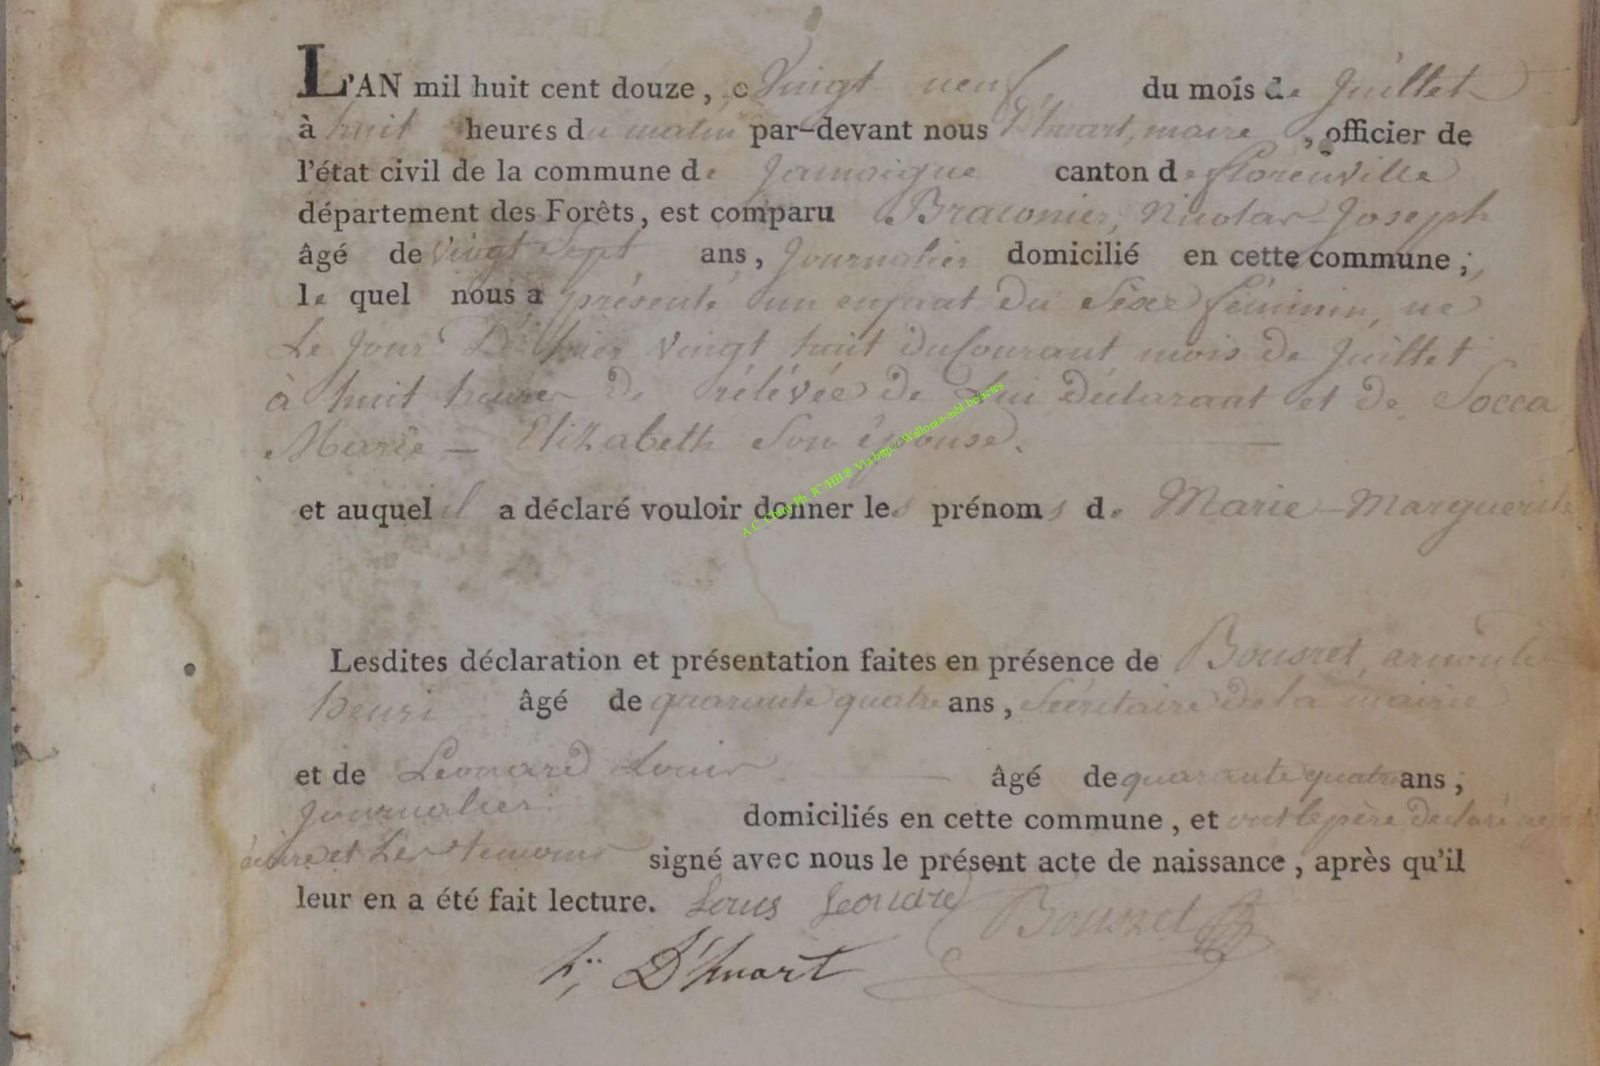 L'AN mil huit cent douze, Vingt neuf du mois de Juillet
à huit heures du matin par-devant nous D'huart, maire, officier de
l'état civil de la commune de Jamoigne canton de florenville
département des Forêts, est comparu Braconier, Nicolas-Joseph
âgé de vingt sept ans, Journalier domicilié en cette commune;
le quel nous a présenté un enfant du Sexe féminin, né
Le Jour D'hier vingt huit du Courant mois de Juillet
à huit heures de rélévée de Lui déclarant et de Socca
Marie - Elizabeth Son épouse.
et auquel il a déclaré vouloir donner les prénoms de Marie-Marguerite
Lesdites déclaration et présentation faites en présence de Bousret, arnould
henri âgé de quarante quatre ans, Sécrétaire de la mairie
et de Léonard Louis âgé de quarante quatre ans;
Journalier domiciliés en cette commune, et ont le père declaré ne
écrire et Les temoins signé avec nous le présent acte de naissance, après qu'il
leur en a été fait lecture. Louis Leonard Bousret
D'huart